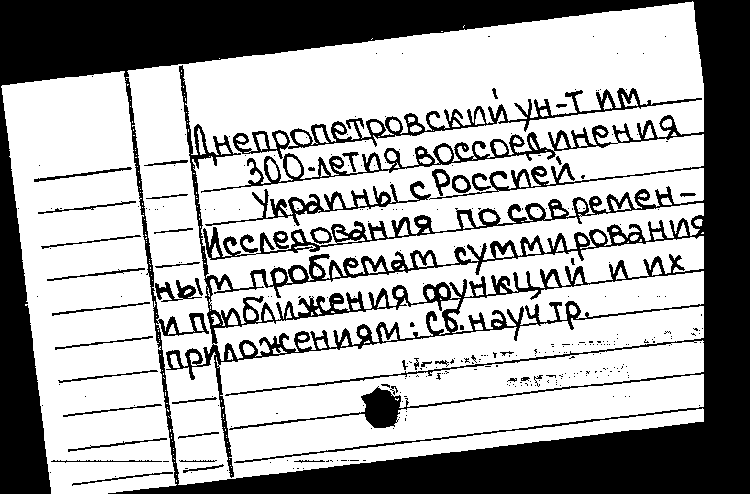 Днепропетровский ун-т им.
300-летия воссоединения
Украины с Россией.
Исследования по современ-
ным проблемам суммирования
и приближения функций и их
приложениям: Сб. науч. тр.